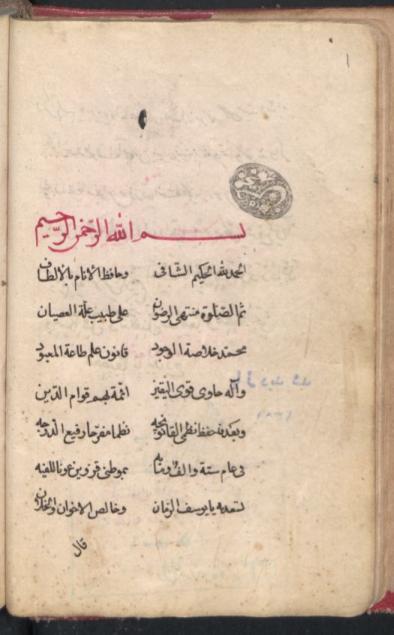 ١
بسم الله الرحمن الرحيم
الحمد لله الحكيم الشافی وحافظ الانام بالالطاف
ثم الصلوة منتهی الرضوان علی طبيب علة العصيان
محمد خلاصة الوجود قانون علم طاعة المعبود
وآله حاوی قوی اليقين ائمة بهم قوام الدين
وبعد حفظ نظمی القانونچه نظما مفرحا رفيع الدرجه
فی عام ستة والف بموطنی قزوين عونا للفيه
لتهديه يا يوسف الزمان وخالص الاخوان والخلان
قال